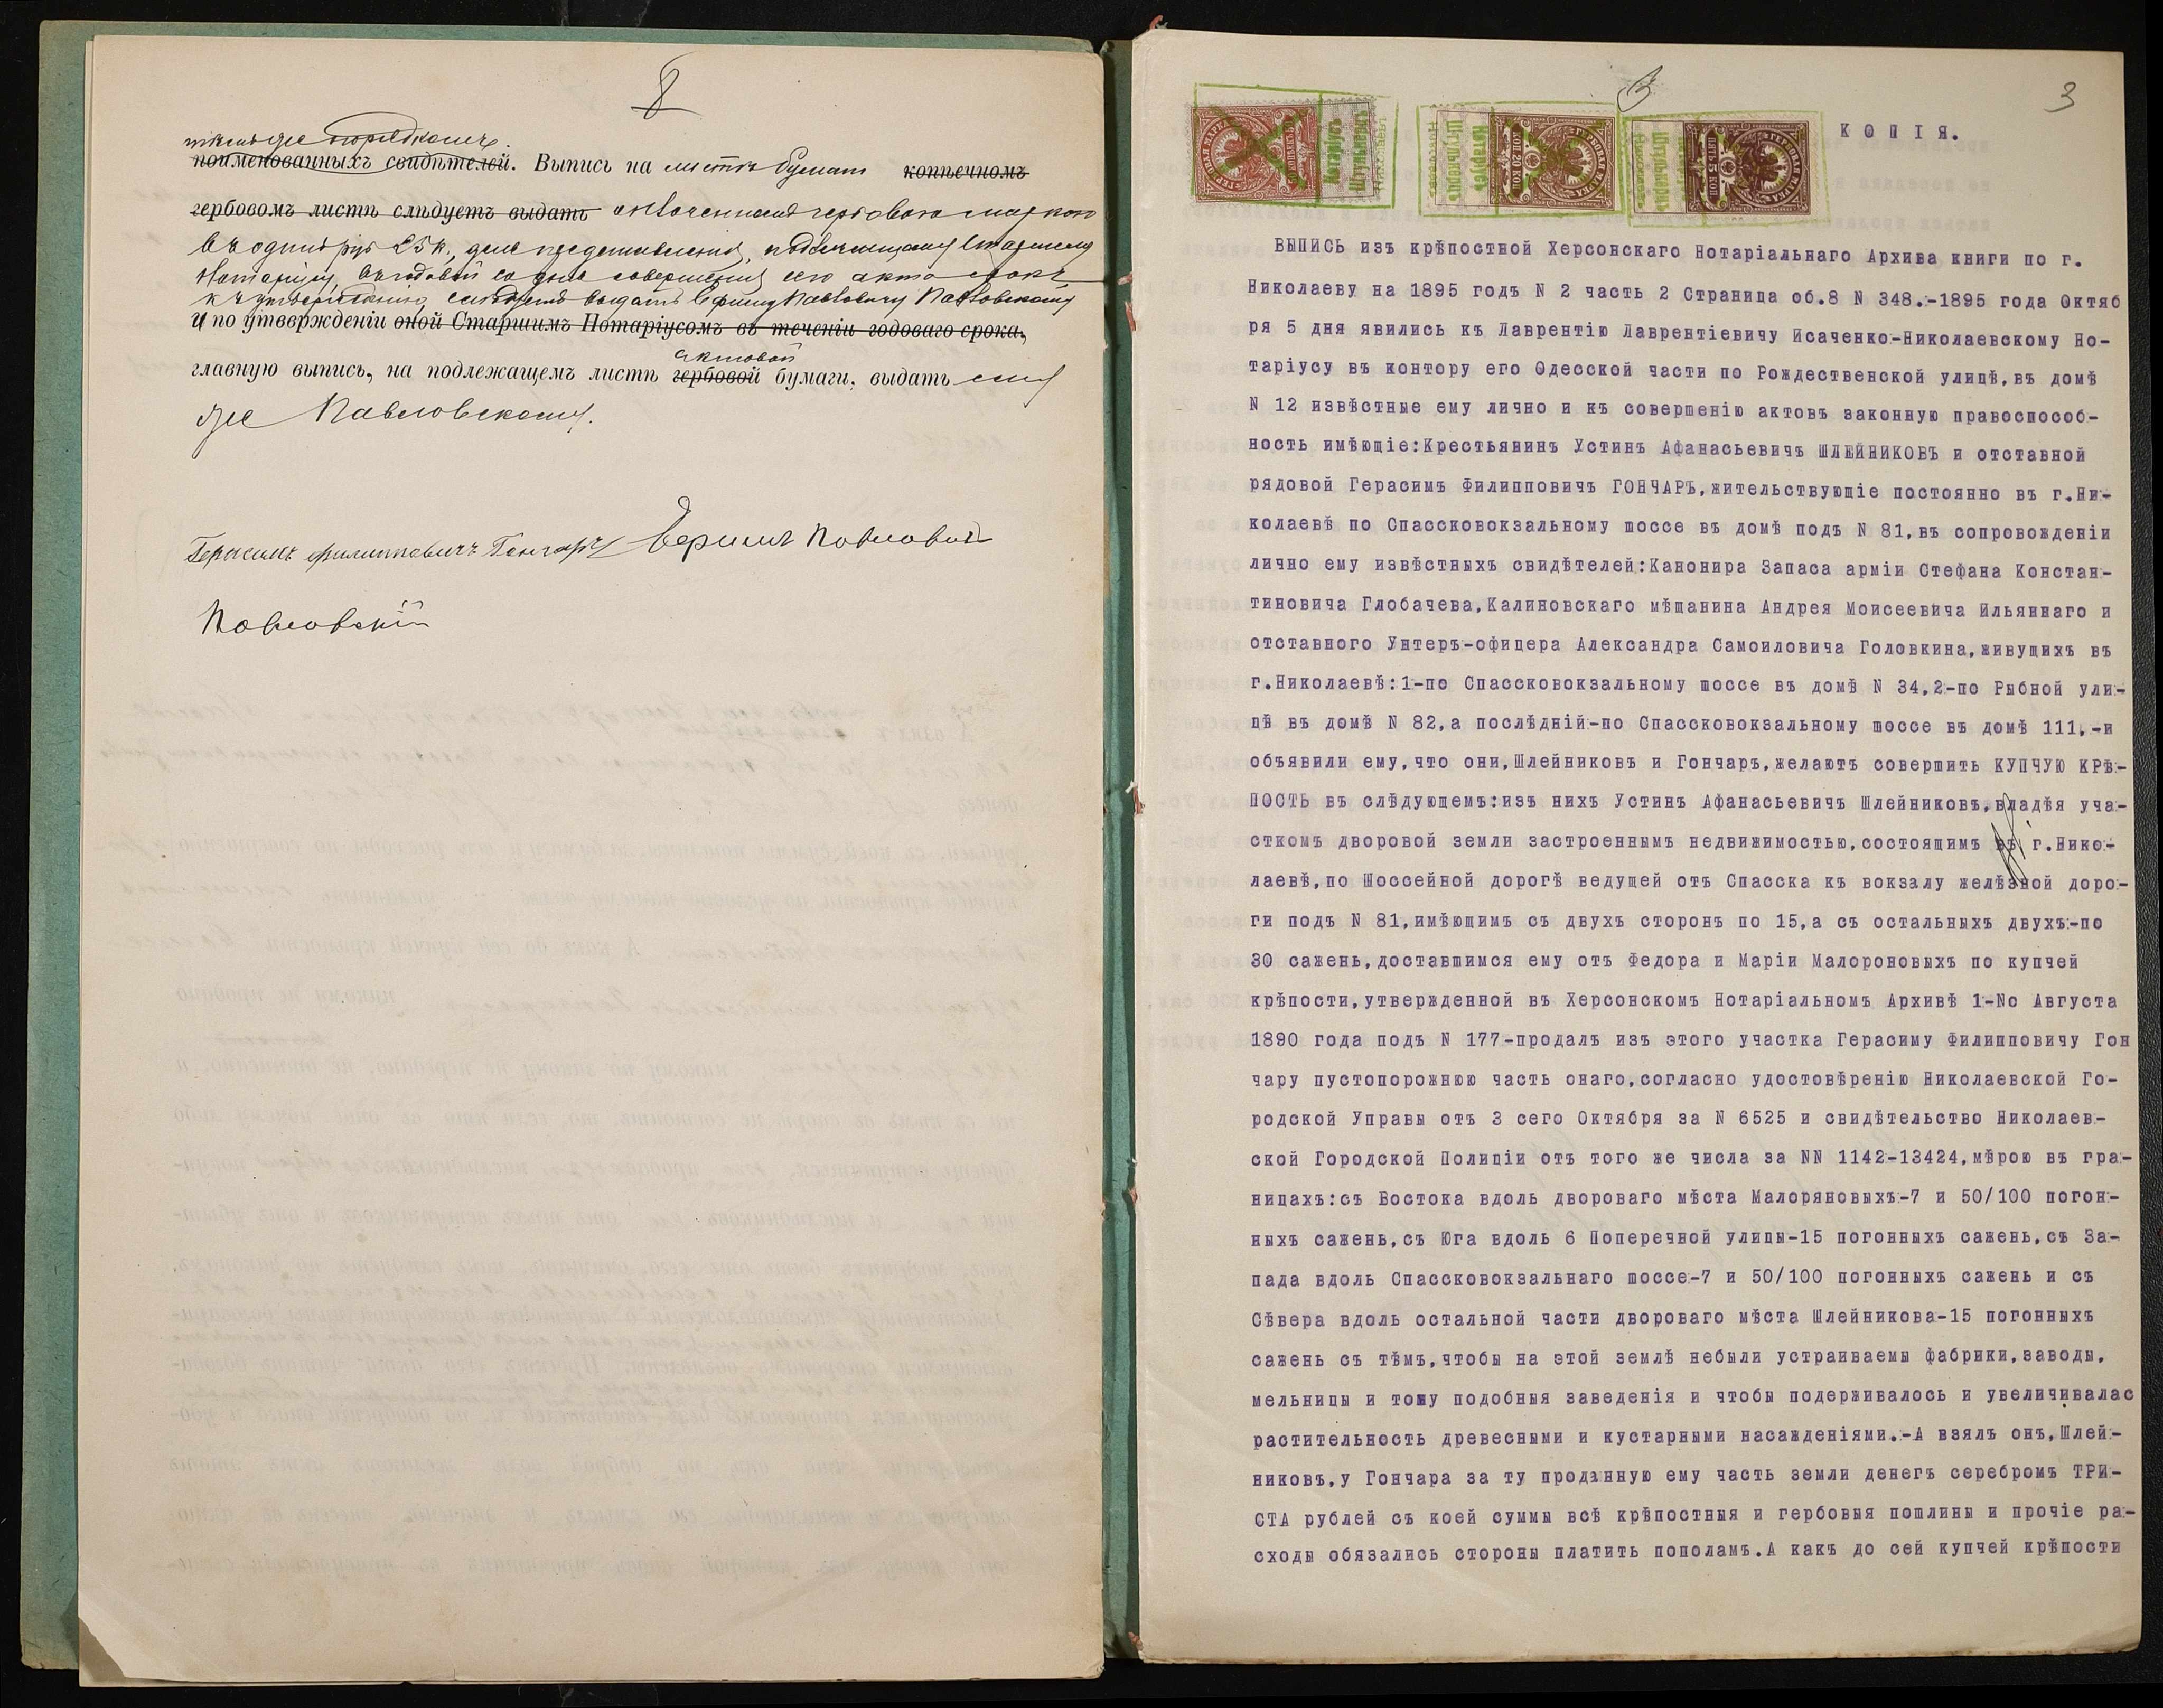 8
тѣмъ же порядкомъ.
поименованныхъ свидѣтелей. Выпись на листѣ бумаги копѣечномъ
гербовомъ листѣ слѣдуетъ выдать оплоченномъ гербовою маркою
въ одинъ руб 25 к., для представленія, подлежащему Старшему
Нотаріусу, въ годовой со дня совершенія сего акта срокъ
къ утвержденію, слѣдуетъ выдать Ефиму Павловичу Павловскому
И по утвержденіи оной Старшимъ Нотаріусомъ въ теченіи годоваго срока,
актовой
главную выпись, на подлежащемъ листѣ гербовой бумаги, выдать ему
же Павловскому.
Герасимъ Филиповичъ Гончаръ Ефимъ Павловъ
Павловскій
3
3
КОПІЯ.
ГЕРБОВАЯ МАРКА
Нотаріусъ
Николаевъ
КОП 20 КОП
ГЕРБОВАЯ МАРКА
ПЯТЬ 5 КОП
ГЕРБОВАЯ МАРКА
ВЫПИСЬ изъ крѣпостной Херсонскаго Нотаріальнаго Архива книги по г.
Николаеву на 1895 годъ N 2 часть 2 Страница об.8 N 348.-1895 года Октяб
ря 5 дня явились къ Лаврентію Лаврентіевичу Исаченко-Николаевскому Но-
таріусу въ контору его Одесской части по Рождественской улицѣ,въ домѣ
N 12 извѣстные ему лично и къ совершенію актовъ законную правоспособ-
ность имѣющіе:Крестьянинъ Устинъ Афанасьевичъ ШЛЕЙНИКОВЪ и отставной
рядовой Герасимъ Филипповичъ ГОНЧАРЪ,жительствующіе постоянно въ г.Ни-
колаевѣ по Спассковокзальному шоссе въ домѣ подъ N 81,въ сопровожденіи
лично ему извѣстныхъ свидѣтелей:Канонира Запаса арміи Стефана Констан-
тиновича Глобачева,Калиновскаго мѣщанина Андрея Моисеевича Ильяннаго и
отставного Унтеръ-офицера Александра Самоиловича Головкина,живущихъ въ
г.Николаевѣ:1-по Спассковокзальному шоссе въ домѣ N 34,2-по Рыбной ули-
цѣ въ домѣ N 82,а послѣдній-по Спассковокзальному шоссе въ домѣ 111,-и
объявили ему,что они,Шлейниковъ и Гончаръ,желаютъ совершить КУПЧУЮ КРѢ-
ПОСТЬ въ слѣдующемъ:изъ нихъ Устинъ Афанасьевичъ Шлейниковъ,владѣя уча-
сткомъ дворовой земли застроеннымъ недвижимостью,состоящимъ въ г.Нико-
лаевѣ,по Шоссейной дорогѣ ведущей отъ Спасска къ вокзалу желѣзной доро-
ги подъ N 81,имѣющимъ съ двухъ сторонъ по 15,а съ остальныхъ двухъ-по
30 сажень,доставшимся ему отъ Федора и Маріи Малороновыхъ по купчей
крѣпости,утвержденной въ Херсонскомъ Нотаріальномъ Архивѣ 1-No Августа
1890 года подъ N 177-продалъ изъ этого участка Герасиму Филипповичу Гон
чару пустопорожнюю часть онаго,согласно удостовѣренію Николаевской Го-
родской Управы отъ 3 сего Октября за N 6525 и свидѣтельство Николаев-
ской Городской Полиціи отъ того же числа за NN 1142-13424,мѣрою въ гра-
ницахъ:съ Востока вдоль двороваго мѣста Малоряновыхъ-7 и 50/100 погон-
ныхъ сажень,съ Юга вдоль 6 Поперечной улицы-15 погонныхъ сажень,съ За-
пада вдоль Спассковокзальнаго шоссе-7 и 50/100 погонныхъ сажень и съ
Сѣвера вдоль остальной части двороваго мѣста Шлейникова-15 погонныхъ
сажень съ тѣмъ,чтобы на этой землѣ небыли устраиваемы фабрики,заводы,
мельницы и тому подобныя заведенія и чтобы подерживалось и увеличивалас
растительность древесными и кустарными насажденіями.-А взялъ онъ,Шлей-
никовъ,у Гончара за ту проданную ему часть земли денегъ серебромъ ТРИ-
СТА рублей съ коей суммы всѣ крѣпостныя и гербовыя пошлины и прочіе ра-
сходы обязались стороны платить пополамъ.А какъ до сей купчей крѣпости